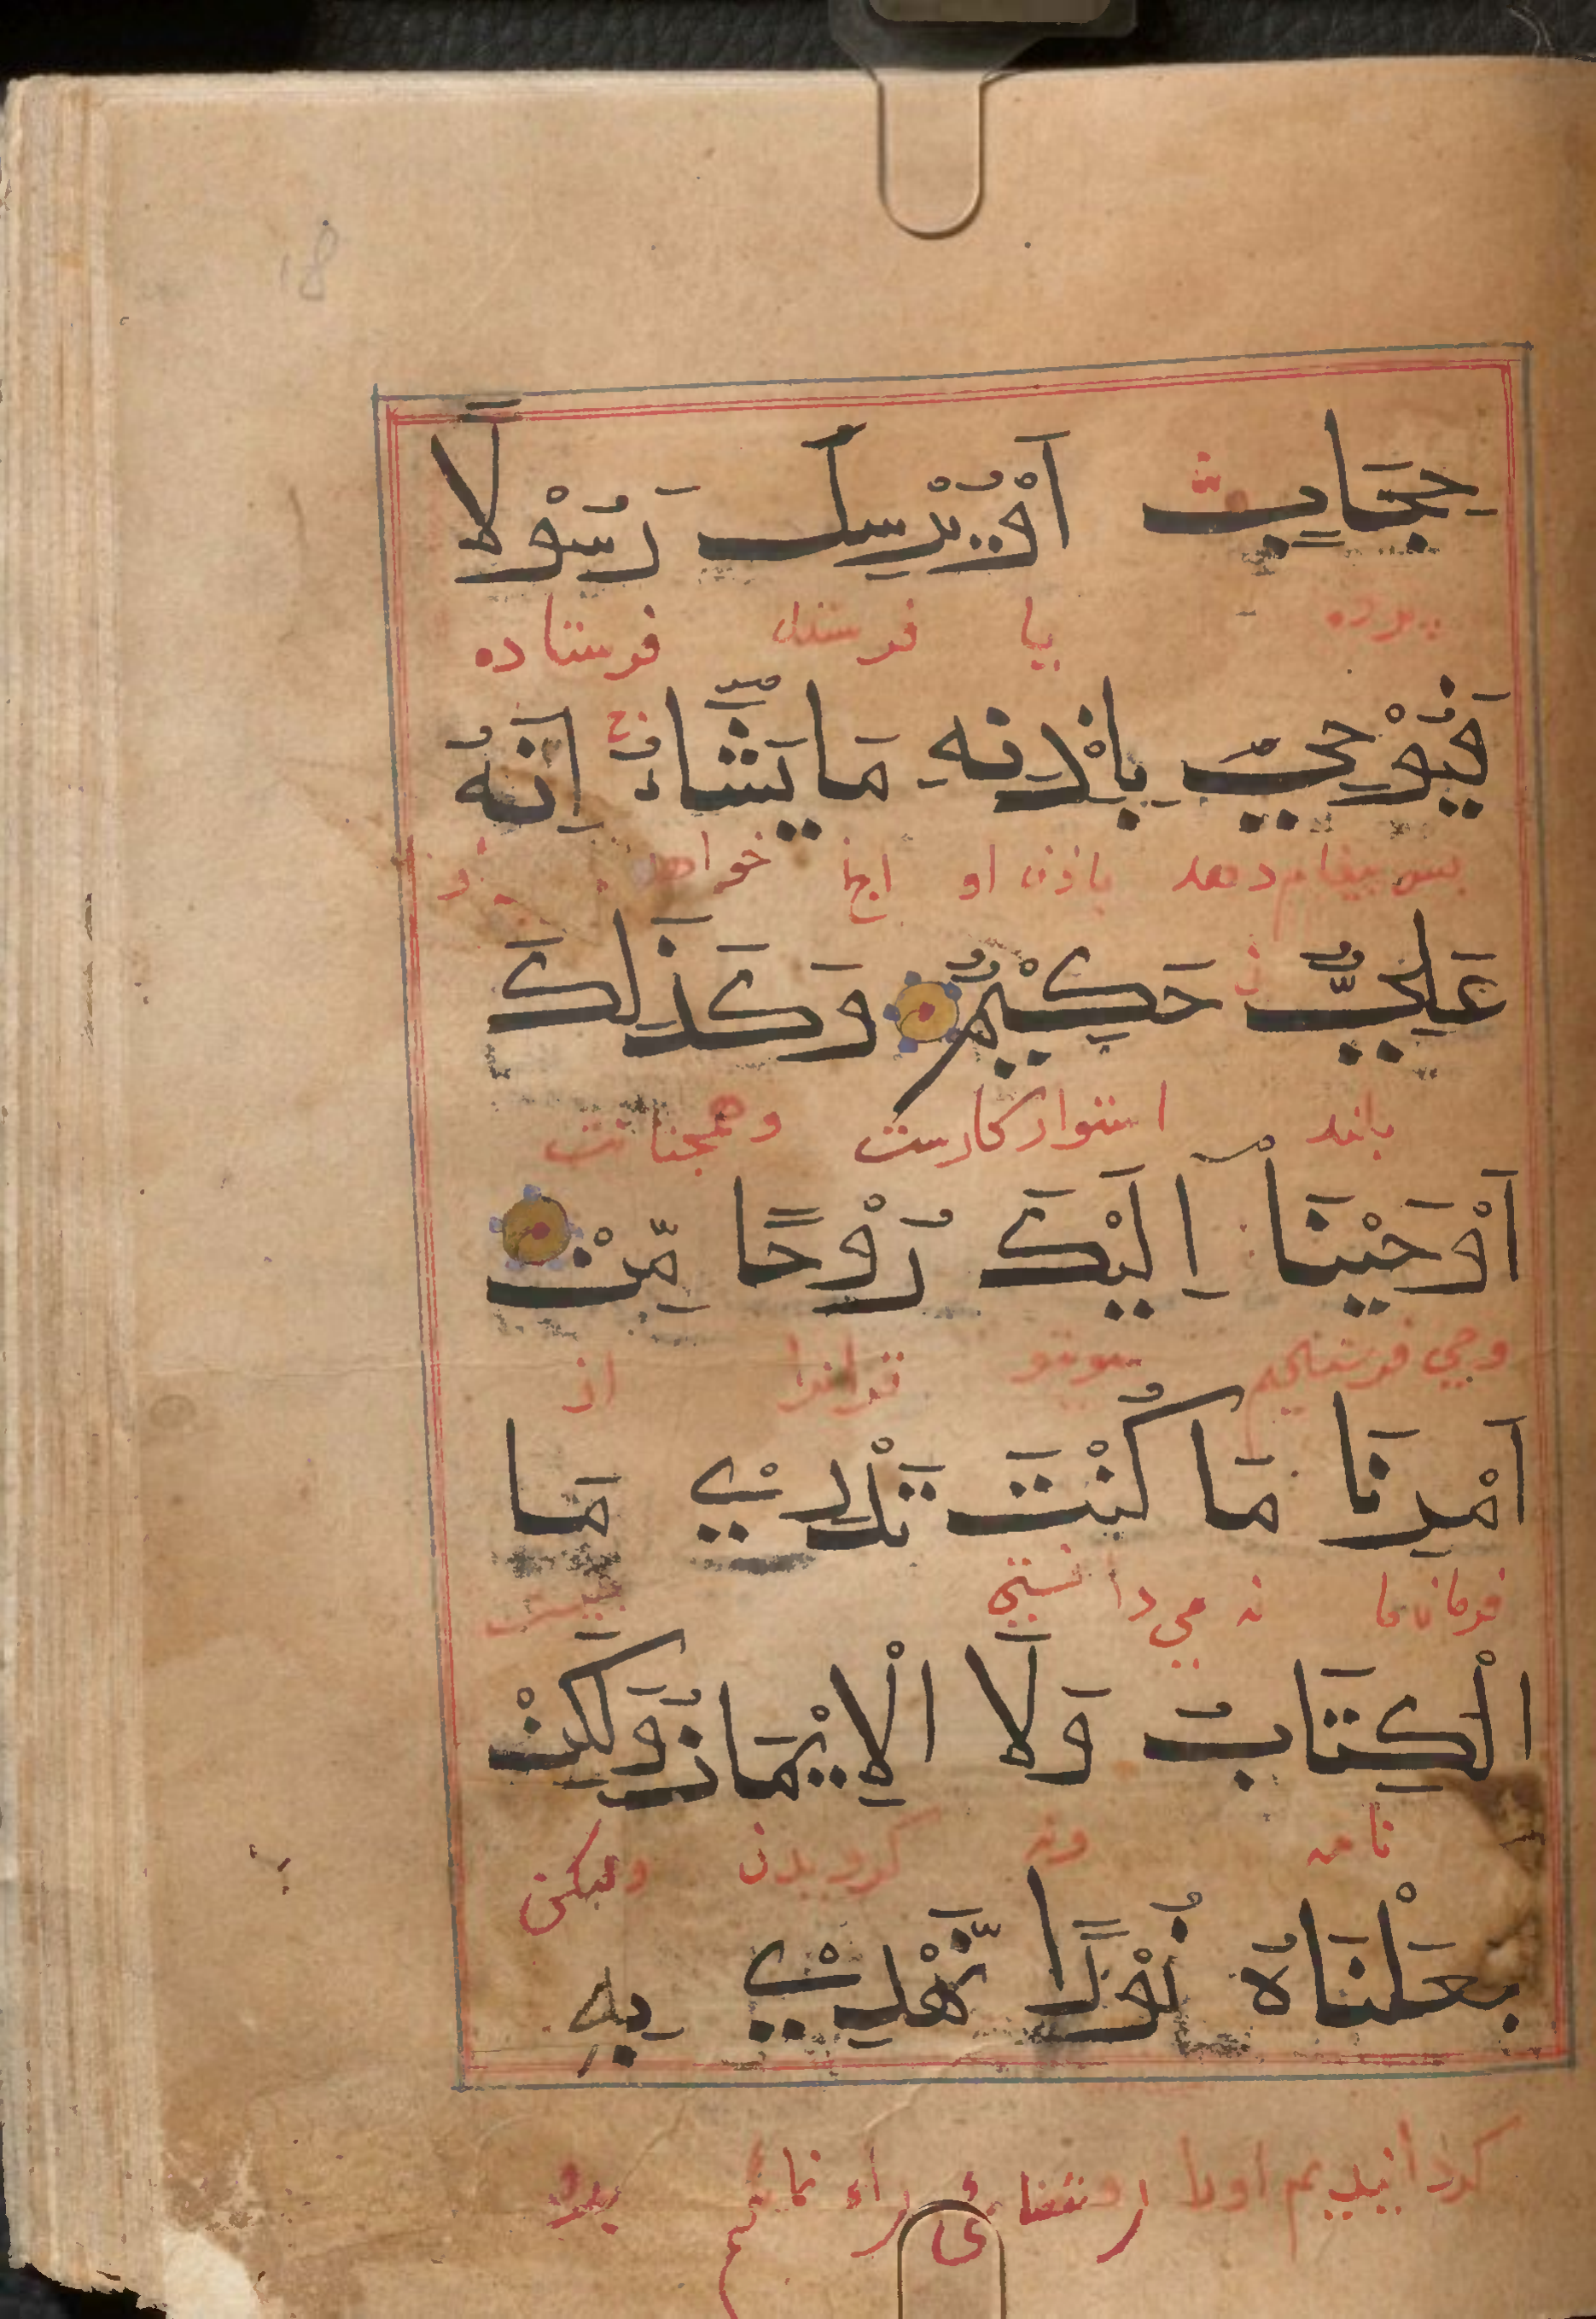 18
حِجَابٍ اَوْ يُرْسِلَ رَسُوْلًا
پرده يا فرستد فرستاده
فَيُوْحِيَ بِاِذْنِهٖ مَا يَشَّاءُ اِنَّهُ
بس بيغام دهد باذن او انچ خواهد
عَلِيٌّ حَكِيْمٌ وَكَذٰلِكَ
بلند استواركارست وهمچنانت
اَوْحَيْنَآ اِلَيْكَ رُوْحًا مِّنْ
وحي فرستاديم سوتو قرانرا از
اَمْرِنَا مَا كُنْتَ تَدْرِيْ مَا
فرمان ما نه مي دانستي
الْكِتَابُ وَلَا الْاِيْمَانُ وَلٰكِنْ
نامه ونه كرويدن وليكن
جَعَلْنَاهُ نُوْرًا نَّهْدِيْ بِهٖ
كردانيديم اورا روشناءى راه نمائيم بدو